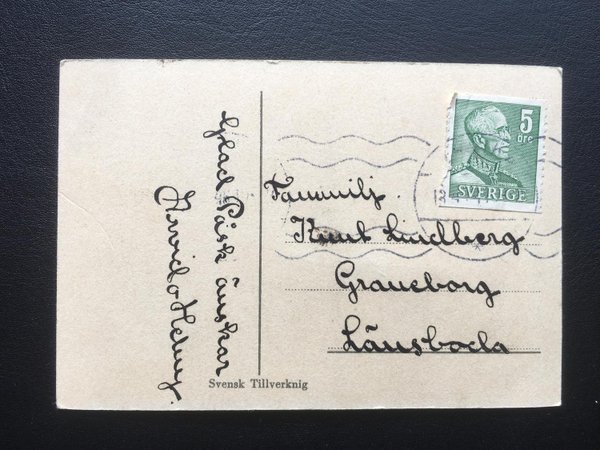 Glad Påsk önskar
Arvid o Helny.
Fammilj.
Knut Lindberg
Graneborg
Länsboda
5
öre
SVERIGE
Svensk Tillverknig